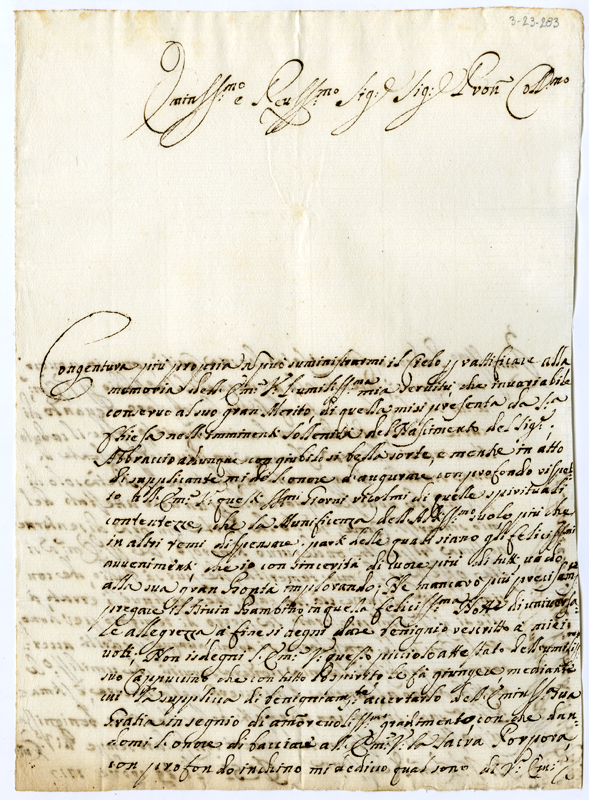 3-23-283
Eminss:mo e Reuss:mo Sig:r Sig:r Pron Coll:mo
Congentura più propria nò può sumministrarmi il Cielo p rattificare alla
memoria dell' Em:a V: l'umiliss:ma mia seruitù, che inuariabile
conseruo al suo gran Merito, di quella mi si presenta da S:a
Chiesa nell' imminente sollenità del Nascimento del Sig:r
Abbraccio adunque con giubilo sì bella sorte, e mentre in atto
di supplicante mi dò l'onore d'augurare con profondo rispet
to all' Em:a S: queste ss:mi Giorni ricolmi di quelle spirituali
contentezze, che la Munificenza dell' Altiss:mo suole più che
in altri temi dispensare, parte delle quali siano gli felicissimi
auuenimenti che io con sincerità di cuore più di tutti uado
alla sua gran Bontà implorando; Ne mancarò più precisam:te
pregare il Diuin Bambino in quella feliciss:ma Notte di uniuersa
le allegrezza a fine si degni dare benigno rescritto a miei
uoti. Non isdegni l' Em:a S: questo picciolo attestato dell' umiliss:
suo Cappuccino che con tutto lo spirito le fà giungere mediante
cui la supplica di benigniam:te accertarlo dell' Eminss:ma sua
Gratia in segnio di amoreuoliss:mo gradimento, con che dan
domi l'onore di bacciare all' Em: S: la Sacra Porpora,
con profondo inchino mi dedico qual sono di V: Em:a